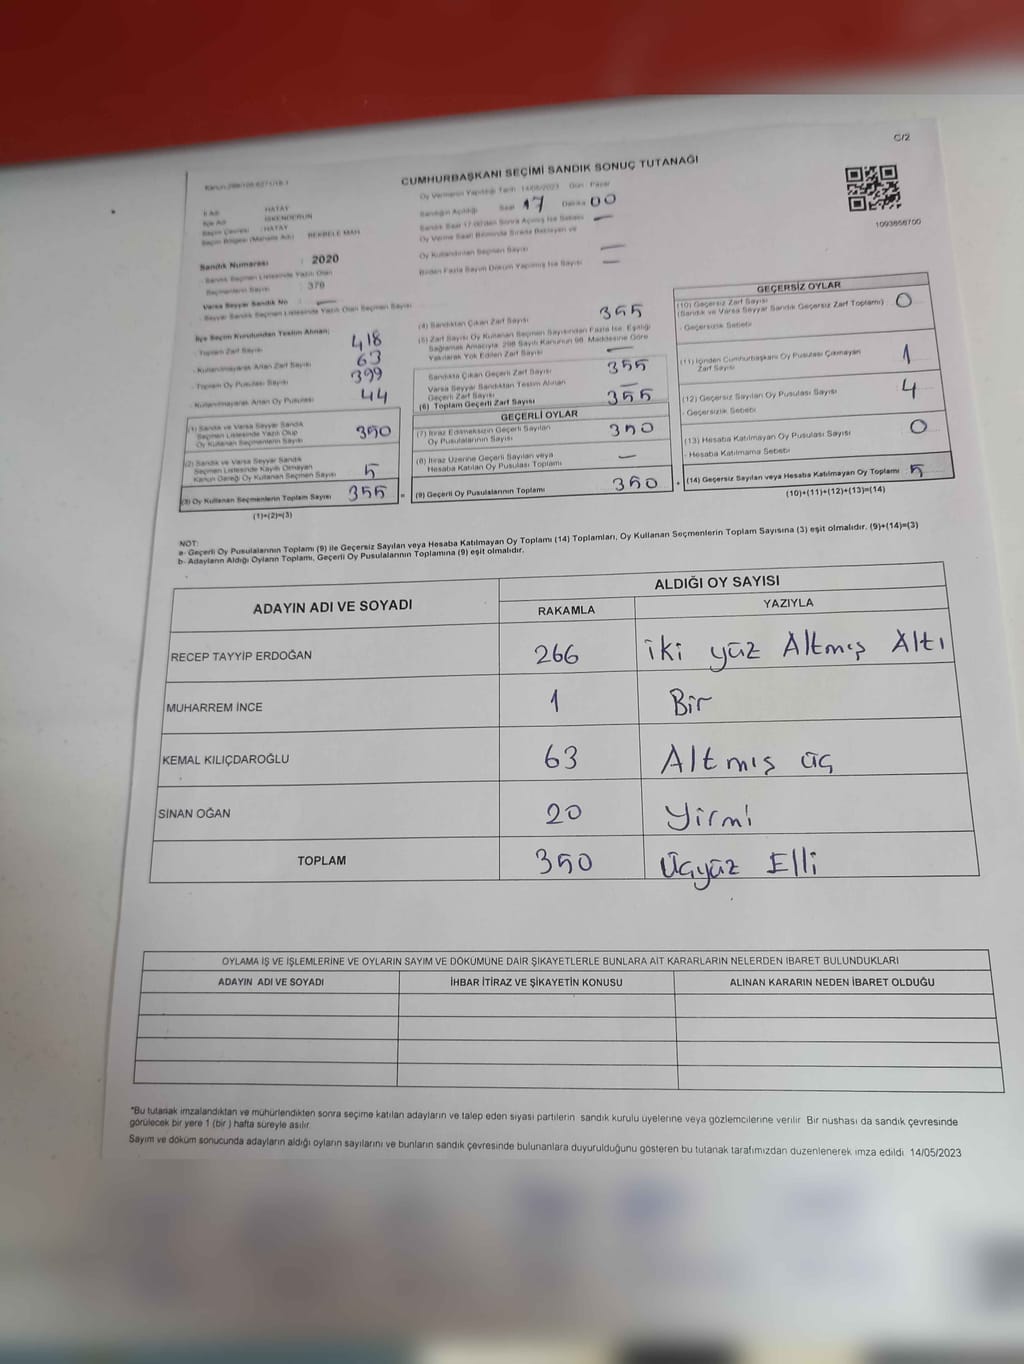 C/2
CUMHURBAŞKANI SEÇİMİ SANDIK SONUÇ TUTANAĞI
Oy Vermenin Yapıldığı Tarih 14/05/2023 Gün : Pazar
1093656700
İl Adı : HATAY
İlçe Adı : İSKENDERUN
Seçim Çevresi : HATAY
Seçim Bölgesi (Mahalle Adı) : BEKBELE MAH
Sandığın Açıldığı Saat 17 Dakika 00
Sandık Saat 17:00'den Sonra Açılmış İse Sebebi —
Oy Verme Saati Bitiminde Sırada Bekleyen ve
Oy Kullandırılan Seçmen Sayısı —
Birden Fazla Sayım Döküm Yapılmış İse Sayısı —
Sandık Numarası : 2020
- Sandık Seçmen Listesinde Yazılı Olan
Seçmenlerin Sayısı : 376
Varsa Seyyar Sandık No : —
- Seyyar Sandık Seçmen Listesinde Yazılı Olan Seçmen Sayısı
İlçe Seçim Kurulundan Teslim Alınan;
- Toplam Zarf Sayısı 418
- Kullanılmayarak Artan Zarf Sayısı 63
- Toplam Oy Pusulası Sayısı 399
- Kullanılmayarak Artan Oy Pusulası 44
(1) Sandık ve Varsa Seyyar Sandık
Seçmen Listesinde Yazılı Olup
Oy Kullanan Seçmenlerin Sayısı 350
(2) Sandık ve Varsa Seyyar Sandık
Seçmen Listesinde Kayıtlı Olmayan
Kanun Gereği Oy Kullanan Seçmen Sayısı 5
(3) Oy Kullanan Seçmenlerin Toplam Sayısı 355 =
(1)+(2)=(3)
(4) Sandıktan Çıkan Zarf Sayısı 355
(5) Zarf Sayısı Oy Kullanan Seçmen Sayısından Fazla İse, Eşitliği
Sağlamak Amacıyla; 298 Sayılı Kanunun 98. Maddesine Göre
Yakılarak Yok Edilen Zarf Sayısı —
Sandıkta Çıkan Geçerli Zarf Sayısı 355
Varsa Seyyar Sandıktan Teslim Alınan
Geçerli Zarf Sayısı —
(6) Toplam Geçerli Zarf Sayısı 355
GEÇERLİ OYLAR
(7) İtiraz Edilmeksizin Geçerli Sayılan
Oy Pusulalarının Sayısı 350
(8) İtiraz Üzerine Geçerli Sayılan veya
Hesaba Katılan Oy Pusulası Toplamı —
(9) Geçerli Oy Pusulalarının Toplamı 350 +
GEÇERSİZ OYLAR
(10) Geçersiz Zarf Sayısı
(Sandık ve Varsa Seyyar Sandık Geçersiz Zarf Toplamı) 0
- Geçersizlik Sebebi
(11) İçinden Cumhurbaşkanı Oy Pusulası Çıkmayan
Zarf Sayısı 1
(12) Geçersiz Sayılan Oy Pusulası Sayısı 4
- Geçersizlik Sebebi
(13) Hesaba Katılmayan Oy Pusulası Sayısı 0
- Hesaba Katılmama Sebebi
(14) Geçersiz Sayılan veya Hesaba Katılmayan Oy Toplamı 5
(10)+(11)+(12)+(13)=(14)
NOT:
a- Geçerli Oy Pusulalarının Toplamı (9) ile Geçersiz Sayılan veya Hesaba Katılmayan Oy Toplamı (14) Toplamları, Oy Kullanan Seçmenlerin Toplam Sayısına (3) eşit olmalıdır. (9)+(14)=(3)
b- Adayların Aldığı Oyların Toplamı, Geçerli Oy Pusulalarının Toplamına (9) eşit olmalıdır.
ADAYIN ADI VE SOYADI
ALDIĞI OY SAYISI
RAKAMLA YAZIYLA
RECEP TAYYİP ERDOĞAN 266 iki yüz Altmış Altı
MUHARREM İNCE 1 Bir
KEMAL KILIÇDAROĞLU 63 Altmış üç
SİNAN OĞAN 20 Yirmi
TOPLAM 350 Üçyüz Elli
OYLAMA İŞ VE İŞLEMLERİNE VE OYLARIN SAYIM VE DÖKÜMÜNE DAİR ŞİKAYETLERLE BUNLARA AİT KARARLARIN NELERDEN İBARET BULUNDUKLARI
ADAYIN ADI VE SOYADI İHBAR İTİRAZ VE ŞİKAYETİN KONUSU ALINAN KARARIN NEDEN İBARET OLDUĞU
*Bu tutanak imzalandıktan ve mühürlendikten sonra seçime katılan adayların ve talep eden siyasi partilerin sandık kurulu üyelerine veya gözlemcilerine verilir. Bir nushası da sandık çevresinde
görülecek bir yere 1 (bir ) hafta süreyle asılır.
Sayım ve döküm sonucunda adayların aldığı oyların sayılarını ve bunların sandık çevresinde bulunanlara duyurulduğunu gösteren bu tutanak tarafımızdan düzenlenerek imza edildi. 14/05/2023